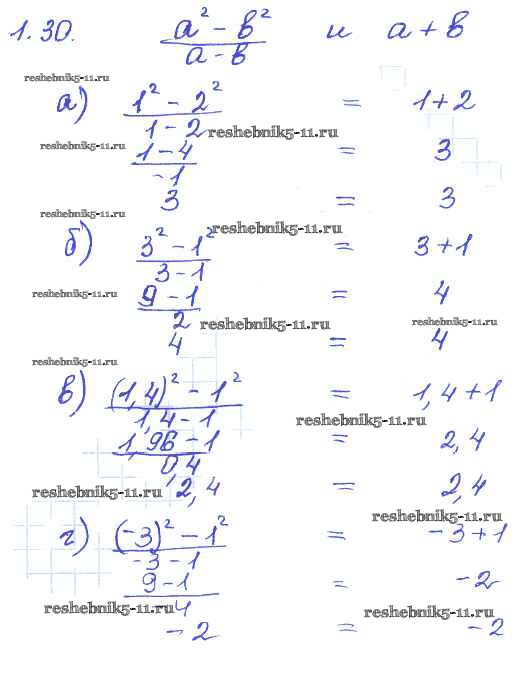 1.30. a² - b² / a - b и a + b
reshebnik5-11.ru
а) 1² - 2² / 1 - 2 = 1 + 2
reshebnik5-11.ru
reshebnik5-11.ru 1 - 4 / -1 = 3
3 = 3
reshebnik5-11.ru
reshebnik5-11.ru
б) 3² - 1² / 3 - 1 = 3 + 1
reshebnik5-11.ru 9 - 1 / 2 = 4
reshebnik5-11.ru reshebnik5-11.ru
4 = 4
reshebnik5-11.ru
в) (1,4)² - 1² / 1,4 - 1 = 1,4 + 1
reshebnik5-11.ru
1,96 - 1 / 0,4 = 2,4
reshebnik5-11.ru 2,4 = 2,4
reshebnik5-11.ru
г) (-3)² - 1² / -3 - 1 = -3 + 1
9 - 1 / -4 = -2
reshebnik5-11.ru reshebnik5-11.ru
-2 = -2